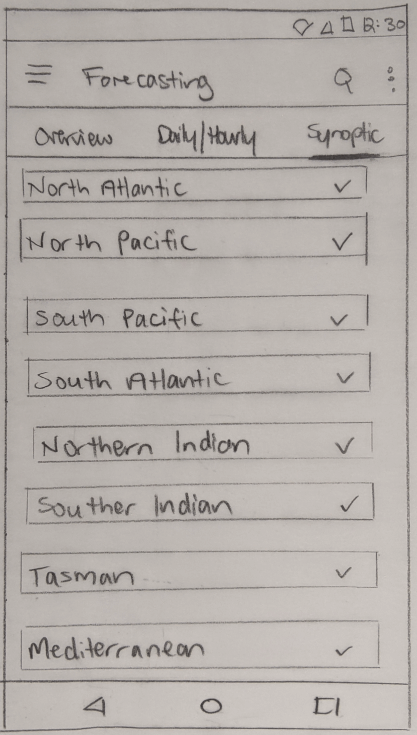 12:30
Forecasting
Overview Daily/Hourly Synoptic
North Atlantic
North Pacific
South Pacific
South Atlantic
Northern Indian
Souther Indian
Tasman
Mediterranean